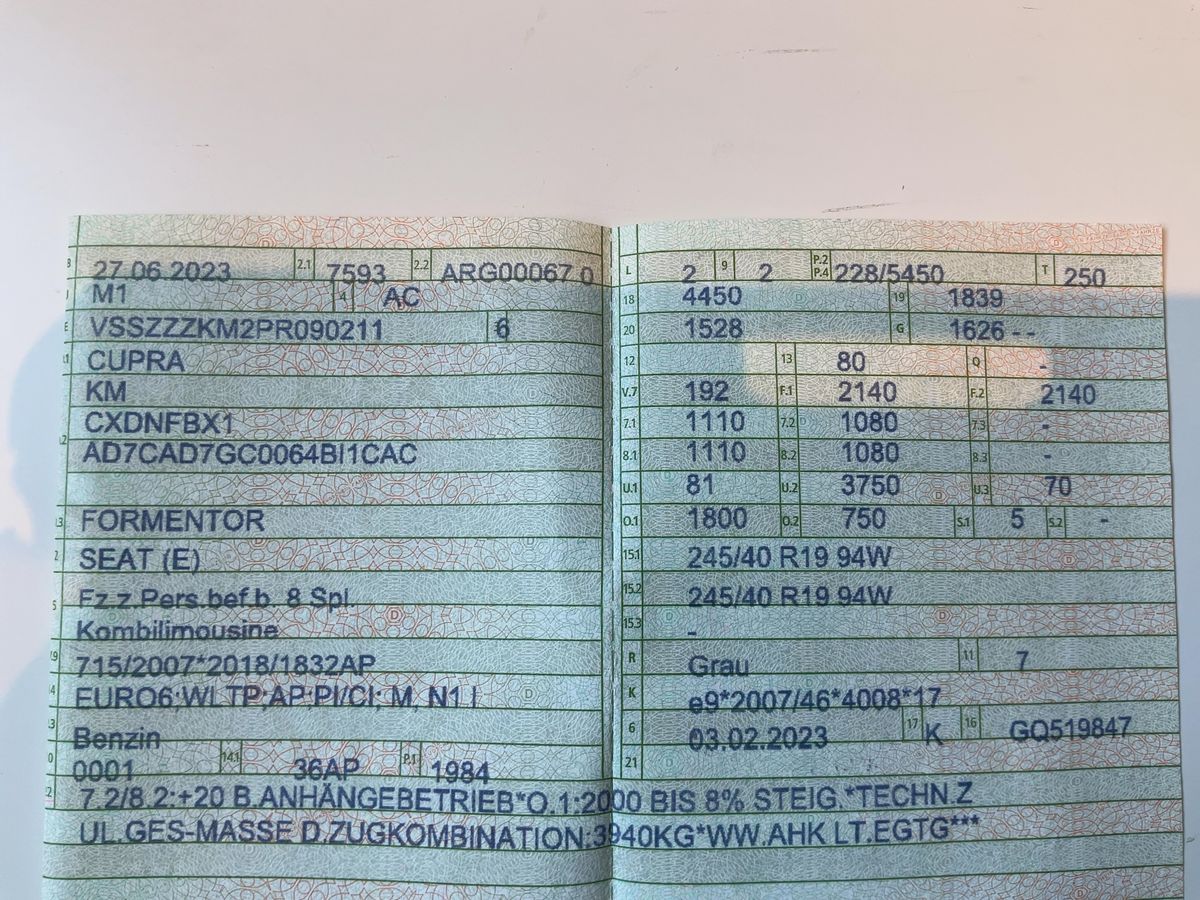 B 27.06.2023 2.1 7593 2.2 ARG00067 0
J M1 4 AC
E VSSZZZKM2PR090211 6
CUPRA
KM
CXDNFBX1
AD7CAD7GC0064BI1CAC
FORMENTOR
SEAT (E)
Fz.z.Pers.bef.b. 8 Spl.
Kombilimousine
715/2007*2018/1832AP
EURO6;WLTP;AP;PI/CI; M, N1 I
Benzin
0001 14.1 36AP P.1 1984
L 2 9 2 P.2 P.4 228/5450 T 250
18 4450 19 1839
20 1528 G 1626 - -
12 13 80 Q -
V.7 192 F.1 2140 F.2 2140
7.1 1110 7.2 1080 7.3 -
8.1 1110 8.2 1080 8.3 -
U.1 81 U.2 3750 U.3 70
O.1 1800 O.2 750 S.1 5 S.2 -
15.1 245/40 R19 94W
15.2 245/40 R19 94W
15.3 -
R Grau 11 7
K e9*2007/46*4008*17
6 03.02.2023 17 K 16 GQ519847
21
7.2/8.2:+20 B.ANHÄNGEBETRIEB*O.1:2000 BIS 8% STEIG.*TECHN.Z
UL.GES-MASSE D.ZUGKOMBINATION:3940KG*WW.AHK LT.EGTG***